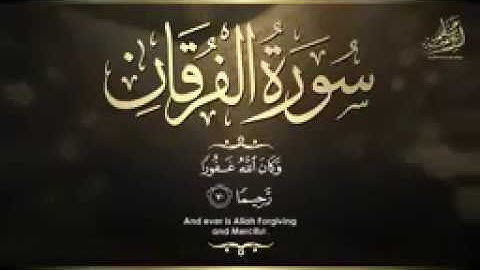 سُورَةُ الْفُرْقَانِ
وَكَانَ ٱللَّهُ غَفُورًا
رَّحِيمًا ٧٠
And ever is Allah Forgiving
and Merciful.